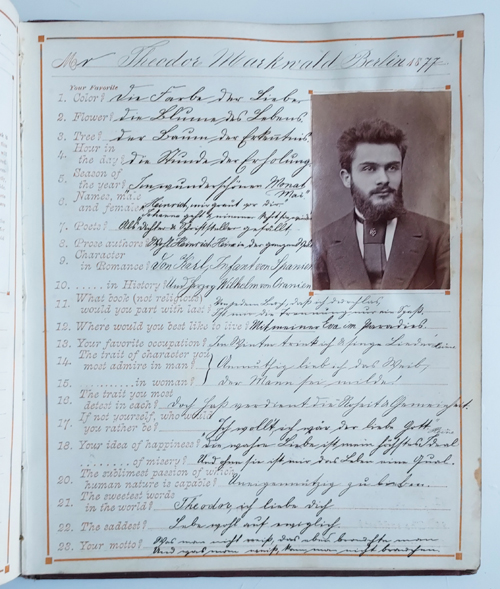 Mr Theodor Markwald Berlin 1877
Your Favorite
1. Color? Die Farbe der Liebe
2. Flower? die Blume des Lebens
3. Tree? der Baum der Erkentnis
4. Hour in
the day? die Stunde der Erholung
5. Season of
the year? Im wunderschönen Monat
Mai
6. Names, male
and female? Heinrich, mir graut vor Dir
Johanna geht u. nimmer
7. Poets? Als Dichter &
8. Prose authors? Heinrich Heine, der
9. Character
in Romance? Don Carlos Infant von Spanien
10. ..... in History? Und Herzog Wilhelm von Oranien
11. What book (not religious)
would you part with last?
12. Where would you best like to live? Mit meiner im Paradies.
13. Your favorite occupation? Im Winter trink ich & singe Lieder
14. The trait of character you
most admire in man? Anmuthig sei das Weib,
15. ........ in woman? Der Mann sei milde!
16. The trait you most
detest in each? Doch Haß verdient die Gemeinheit.
17. If not yourself, who would
you rather be? Ich wollt ich wär der liebe Gott
18. Your idea of happiness? Die wahre Liebe ist mein höchstes Ideal
19. ........ of misery? Und ohne sie ist mir das Leben eine Qual.
20. The sublimest passion of which
human nature is capable? Uneigennützig zu
21. The sweetest words
in the world? Theodor, ich liebe dich
22. The saddest? Lebe wohl auf ewiglich.
23. Your motto? Was man nicht weiß, das eben brauchte man
Und was man weiß, kann man nicht brauchen.